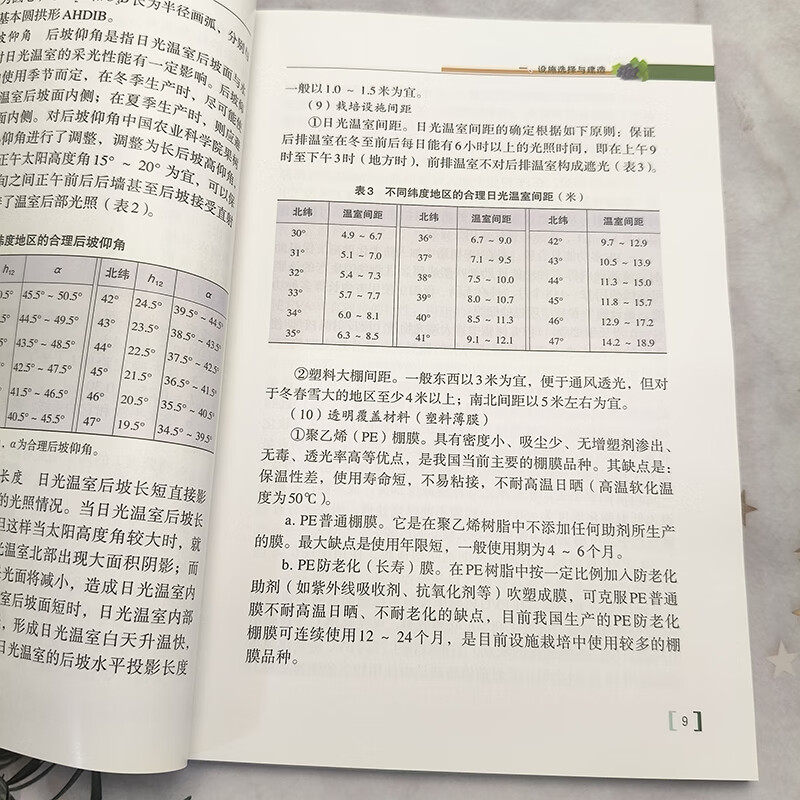 长为半径画弧，分别与
基本圆拱形AHDIB。
坡仰角 后坡仰角是指日光温室后坡面与水
日光温室的采光性能有一定影响。后坡仰
使用季节而定，在冬季生产时，尽可能使
温室后坡面内侧；在夏季生产时，则应避
面内侧。对后坡仰角中国农业科学院果树
仰角进行了调整，调整为长后坡高仰角，
正午太阳高度角15°～20°为宜，可以保
间之间正午前后后墙甚至后坡接受直射
了温室后部光照（表2）。
纬度地区的合理后坡仰角
h12 α 北纬 h12 α
0.5° 45.5°～50.5° 42° 24.5° 39.5°～44.5°
44.5°～49.5° 43° 23.5° 38.5°～43.5°
43.5°～48.5° 44° 22.5° 37.5°～42.5°
42.5°～47.5° 45° 21.5° 36.5°～41.5°
41.5°～46.5° 46° 20.5° 35.5°～40.5°
40.5°～45.5° 47° 19.5° 34.5°～39.5°
，α为合理后坡仰角。
长度 日光温室后坡长短直接影
的光照情况。当日光温室后坡长
但这样当太阳高度角较大时，就
光温室北部出现大面积阴影；而
光面将减小，造成日光温室内
室后坡面短时，日光温室内部
，形成日光温室白天升温快，
日光温室的后坡水平投影长度
一、设施选择与建造
一般以1.0～1.5米为宜。
（9）栽培设施间距
①日光温室间距。日光温室间距的确定根据如下原则：保证
后排温室在冬至前后每日能有6小时以上的光照时间，即在上午9
时至下午3时（地方时），前排温室不对后排温室构成遮光（表3）。
表3 不同纬度地区的合理日光温室间距（米）
北纬 温室间距 北纬 温室间距 北纬 温室间距
30° 4.9～6.7 36° 6.7～9.0 42° 9.7～12.9
31° 5.1～7.0 37° 7.1～9.5 43° 10.5～13.9
32° 5.4～7.3 38° 7.5～10.0 44° 11.3～15.0
33° 5.7～7.7 39° 8.0～10.7 45° 11.8～15.7
34° 6.0～8.1 40° 8.5～11.3 46° 12.9～17.2
35° 6.3～8.5 41° 9.1～12.1 47° 14.2～18.9
②塑料大棚间距。一般东西以3米为宜，便于通风透光，但对
于冬春雪大的地区至少4米以上；南北间距以5米左右为宜。
（10）透明覆盖材料（塑料薄膜）
①聚乙烯（PE）棚膜。具有密度小、吸尘少、无增塑剂渗出、
无毒、透光率高等优点，是我国当前主要的棚膜品种。其缺点是：
保温性差，使用寿命短，不易粘接，不耐高温日晒（高温软化温
度为50℃）。
a. PE普通棚膜。它是在聚乙烯树脂中不添加任何助剂所生产
的膜。最大缺点是使用年限短，一般使用期为4～6个月。
b. PE防老化（长寿）膜。在PE树脂中按一定比例加入防老化
助剂（如紫外线吸收剂、抗氧化剂等）吹塑成膜，可克服PE普通
膜不耐高温日晒、不耐老化的缺点，目前我国生产的PE防老化
棚膜可连续使用12～24个月，是目前设施栽培中使用较多的棚
膜品种。
9